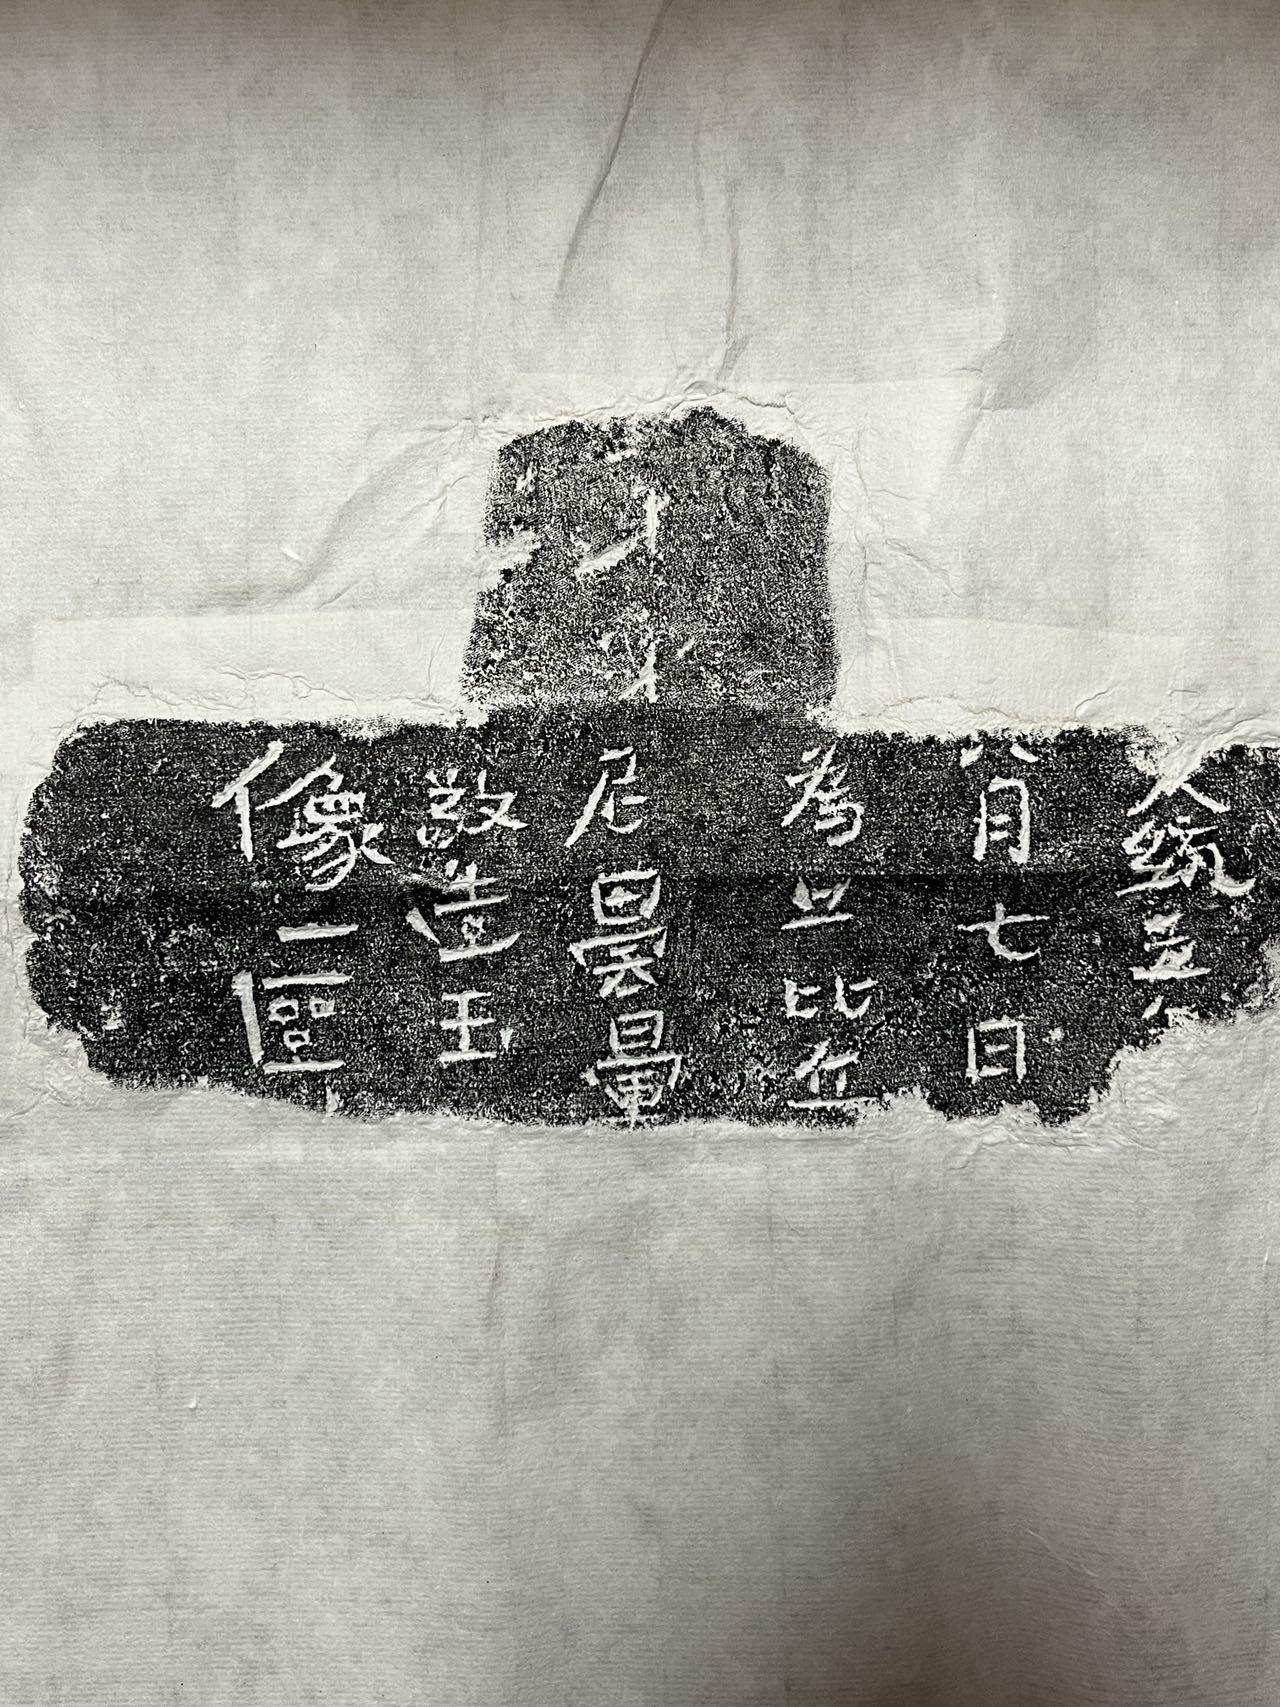 天統五
八月七日
為亡比丘
尼曇暈
敬造玉
像一區